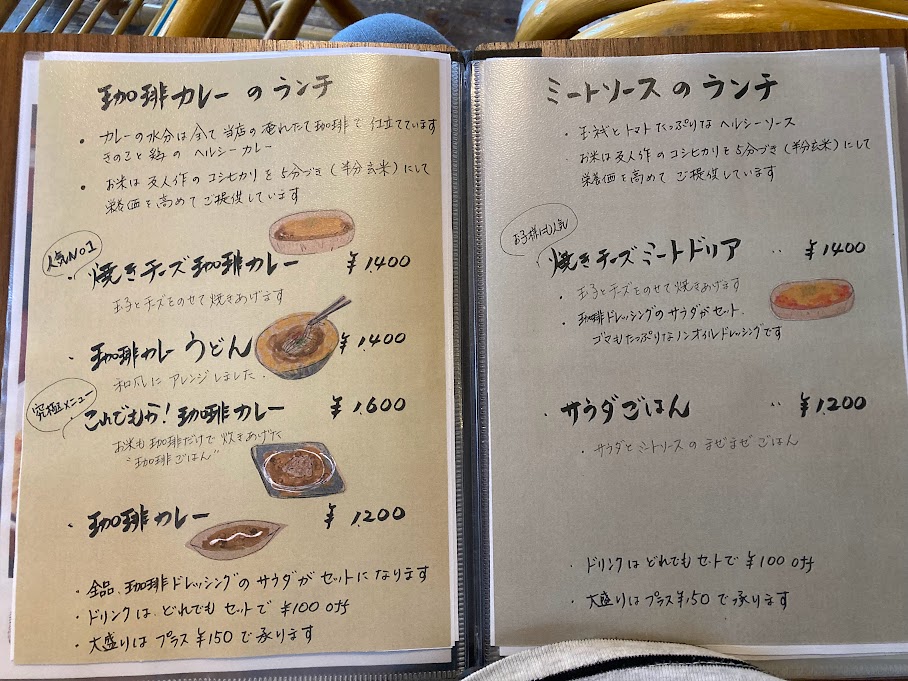 珈琲カレー の ランチ
・ カレーの水分は全て当店の淹れたて珈琲で仕立てています
きのこと鶏の ヘルシーカレー
・ お米は友人作の コシヒカリを5分づき(半分玄米)にして
栄養価を高めて ご提供しています
人気No1
・ 焼きチーズ珈琲カレー ¥1400
玉子とチーズをのせて焼きあげます
・ 珈琲カレー うどん ¥1,400
和風に アレンジしました.
究極メニュー
・ これでもか！珈琲カレー ¥1,600
お米も珈琲だけで炊きあげた
"珈琲ごはん"
・ 珈琲カレー ¥1,200
・ 全品、珈琲ドレッシングのサラダがセットになります
・ ドリンクは、どれでもセットで ¥100 off
・ 大盛りは プラス¥150で承ります
ミートソース の ランチ
・ 玉ねぎとトマトたっぷりな ヘルシーソース
・ お米は友人作の コシヒカリを5分づき(半分玄米)にして
栄養価を高めて ご提供しています
お子様にも人気
・ 焼きチーズミートドリア ‥ ¥1400
・ 玉子とチーズをのせて焼きあげます
・ 珈琲ドレッシングのサラダがセット.
ゴマもたっぷりなノンオイルドレッシングです
・ サラダごはん ‥ ¥1,200
・ サラダとミートソースの まぜまぜごはん
・ ドリンクは どれでもセットで ¥100 off
・ 大盛りは プラス¥150で承ります